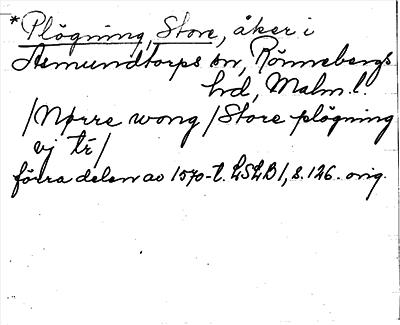 *Plögning, Store, åker i
Asmundtorps sn, Rönnebergs
hd, Malm. l.
/Nørre wong/Store plögning
vj tr/
förra delen av 1570-t. LSLB1, s. 126. orig.